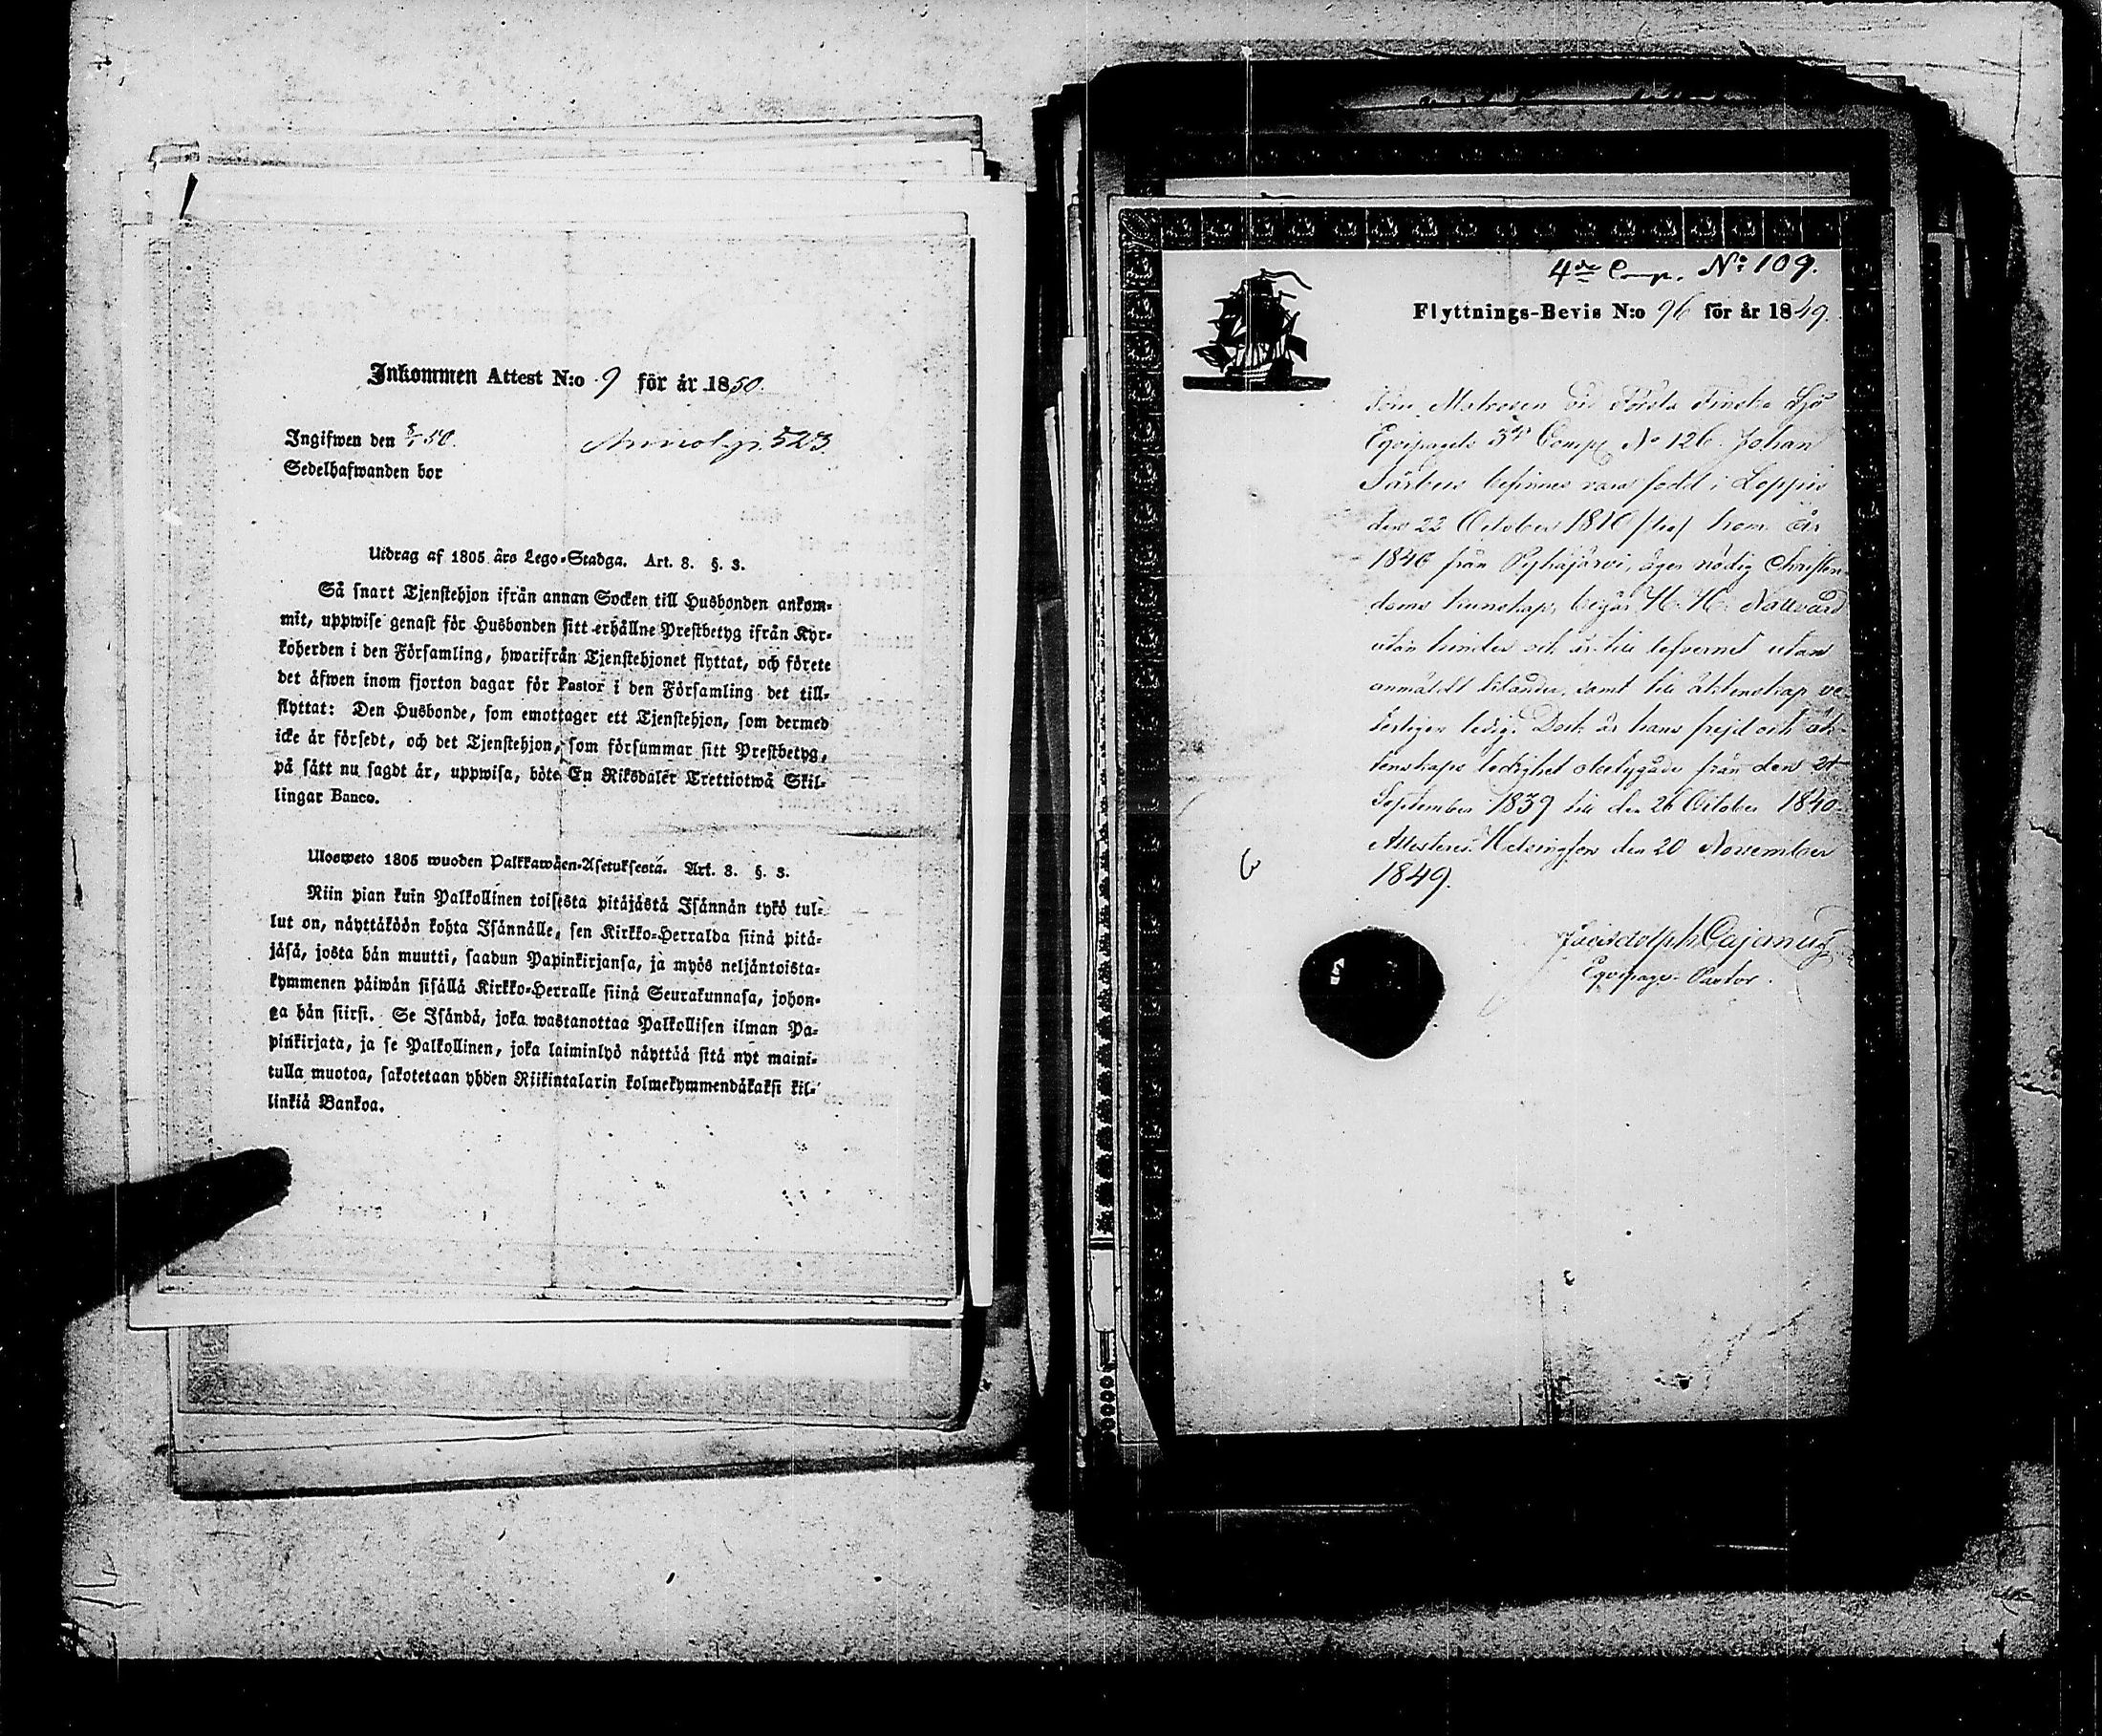 Inkommen Attest N:o 9 för år 1850.
Ingifwen den 8/1 50.
523
Sedelhafwanden bor
Utdrag af 1805 års Lego-Stadga. Art. 8. §. 3.
Så snart Tjenstehjon ifrån annan Socken till Husbonden ankom-
mit, uppwise genast för Husbonden sitt erhållne Prestbetyg ifrån Kyr-
koherden i den Församling, hwarifrån Tjenstehjonet flyttat, och förete
det äfwen inom fjorton dagar för Pastor i den Församling det till-
flyttat: Den Husbonde, som emottager ett Tjenstehjon, som dermed
icke är försedt, och det Tjenstehjon, som försummar sitt Prestbetyg,
på sätt nu sagdt är, uppwisa, böte En Riksdaler Trettiotwå Skil-
lingar Banco.
Ulosweto 1805 wuoden Palkkawäen-Asetuksesta. Art. 8. §. 3.
Niin pian kuin Palkollinen toisesta pitäjästä Isännän tykö tul-
lut on, näyttäköön kohta Isännälle, sen Kirkko-Herralda siinä pitä-
jäsä, josta hän muutti, saadun Papinkirjansa, ja myös neljäntoista-
kymmenen päiwän sisällä Kirkko-Herralle siinä Seurakunnasa, johon-
ga hän siirsi. Se Isändä, joka wastanottaa Palkollisen ilman Pa-
pinkirjata, ja se Palkollinen, joka laiminlyö näyttää sitä nyt maini-
tulla muotoa, sakotetaan yhden Riikintalarin kolmekymmendäkaksi kil-
linkiä Bankoa.
4de Comp. No 109.
Flyttnings-Bevis N:o 96 för år 1849.
som Matrosen vid Första Finska Sjö
Eqvipagets 3dje Comp. No 126 Johan
befinnes vara född i Loppis
den 22 October 1816 kom år
1846 från Pyhäjärvi, äger nödig Christen-
doms kunskap, begår H. H. Nattvard
utan hinder och är till lefvernet utan
anmäldt samt till äktenskap ve-
terligen ledig. Dock är hans frejd och äk-
tenskaps ledighet obetygade från den 21
September 1839 till den 26 October 1840.
Attesteras. Helsingfors den 20 November
1849.
Cajanus
Eqvipage-Pastor.